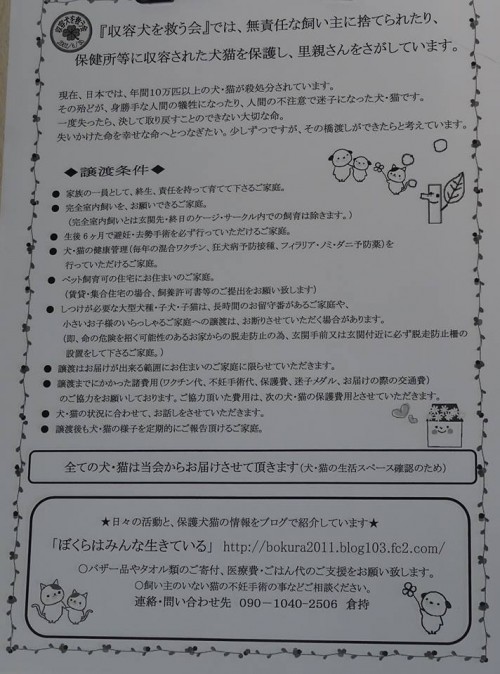 収容犬を救う会
『収容犬を救う会』では、無責任な飼い主に捨てられたり、
保健所等に収容された犬猫を保護し、里親さんをさがしています。
現在、日本では、年間10万匹以上の犬・猫が殺処分されています。
その殆どが、身勝手な人間の犠牲になったり、人間の不注意で迷子になった犬・猫です。
一度失ったら、決して取り戻すことのできない大切な命。
失いかけた命を幸せな命へとつなぎたい。少しずつですが、その橋渡しができたらと考えています。
◆譲渡条件◆
● 家族の一員として、終生、責任を持って育てて下さるご家庭。
● 完全室内飼いを、お願いできるご家庭。
(完全室内飼いとは玄関先・終日のケージ・サークル内での飼育は除きます。)
● 生後6ヶ月で避妊・去勢手術を必ず行っていただけるご家庭。
● 犬・猫の健康管理(毎年の混合ワクチン、狂犬病予防接種、フィラリア・ノミ・ダニ予防薬)を
行っていただけるご家庭。
● ペット飼育可の住宅にお住まいのご家庭。
(賃貸・集合住宅の場合、飼養許可書等のご提出をお願い致します)
● しつけが必要な大型犬種・子犬・子猫は、長時間のお留守番があるご家庭や、
小さいお子様のいらっしゃるご家庭への譲渡は、お断りさせていただく場合があります。
(即、命の危険を招く可能性のあるお家からの脱走防止の為、玄関手前又は玄関付近に必ず脱走防止柵の
設置をして下さるご家庭。)
● 譲渡はお届けが出来る範囲にお住まいのご家庭に限らせていただきます。
● 譲渡までにかかった諸費用(ワクチン代、不妊手術代、保護費、迷子メダル、お届けの際の交通費)
のご協力をお願いしております。ご協力頂いた費用は、次の犬・猫の保護費用とさせていただきます。
● 犬・猫の状況に合わせて、お話をさせていただきます。
● 譲渡後も犬・猫の様子を定期的にご報告頂けるご家庭。
全ての犬・猫は当会からお届けさせて頂きます(犬・猫の生活スペース確認のため)
★日々の活動と、保護犬猫の情報をブログで紹介しています★
「ぼくらはみんな生きている」 http://bokura2011.blog103.fc2.com/
○バザー品やタオル類のご寄付、医療費・ごはん代のご支援をお願い致します。
○飼い主のいない猫の不妊手術の事などご相談ください。
連絡・問い合わせ先 090-1040-2506 倉持